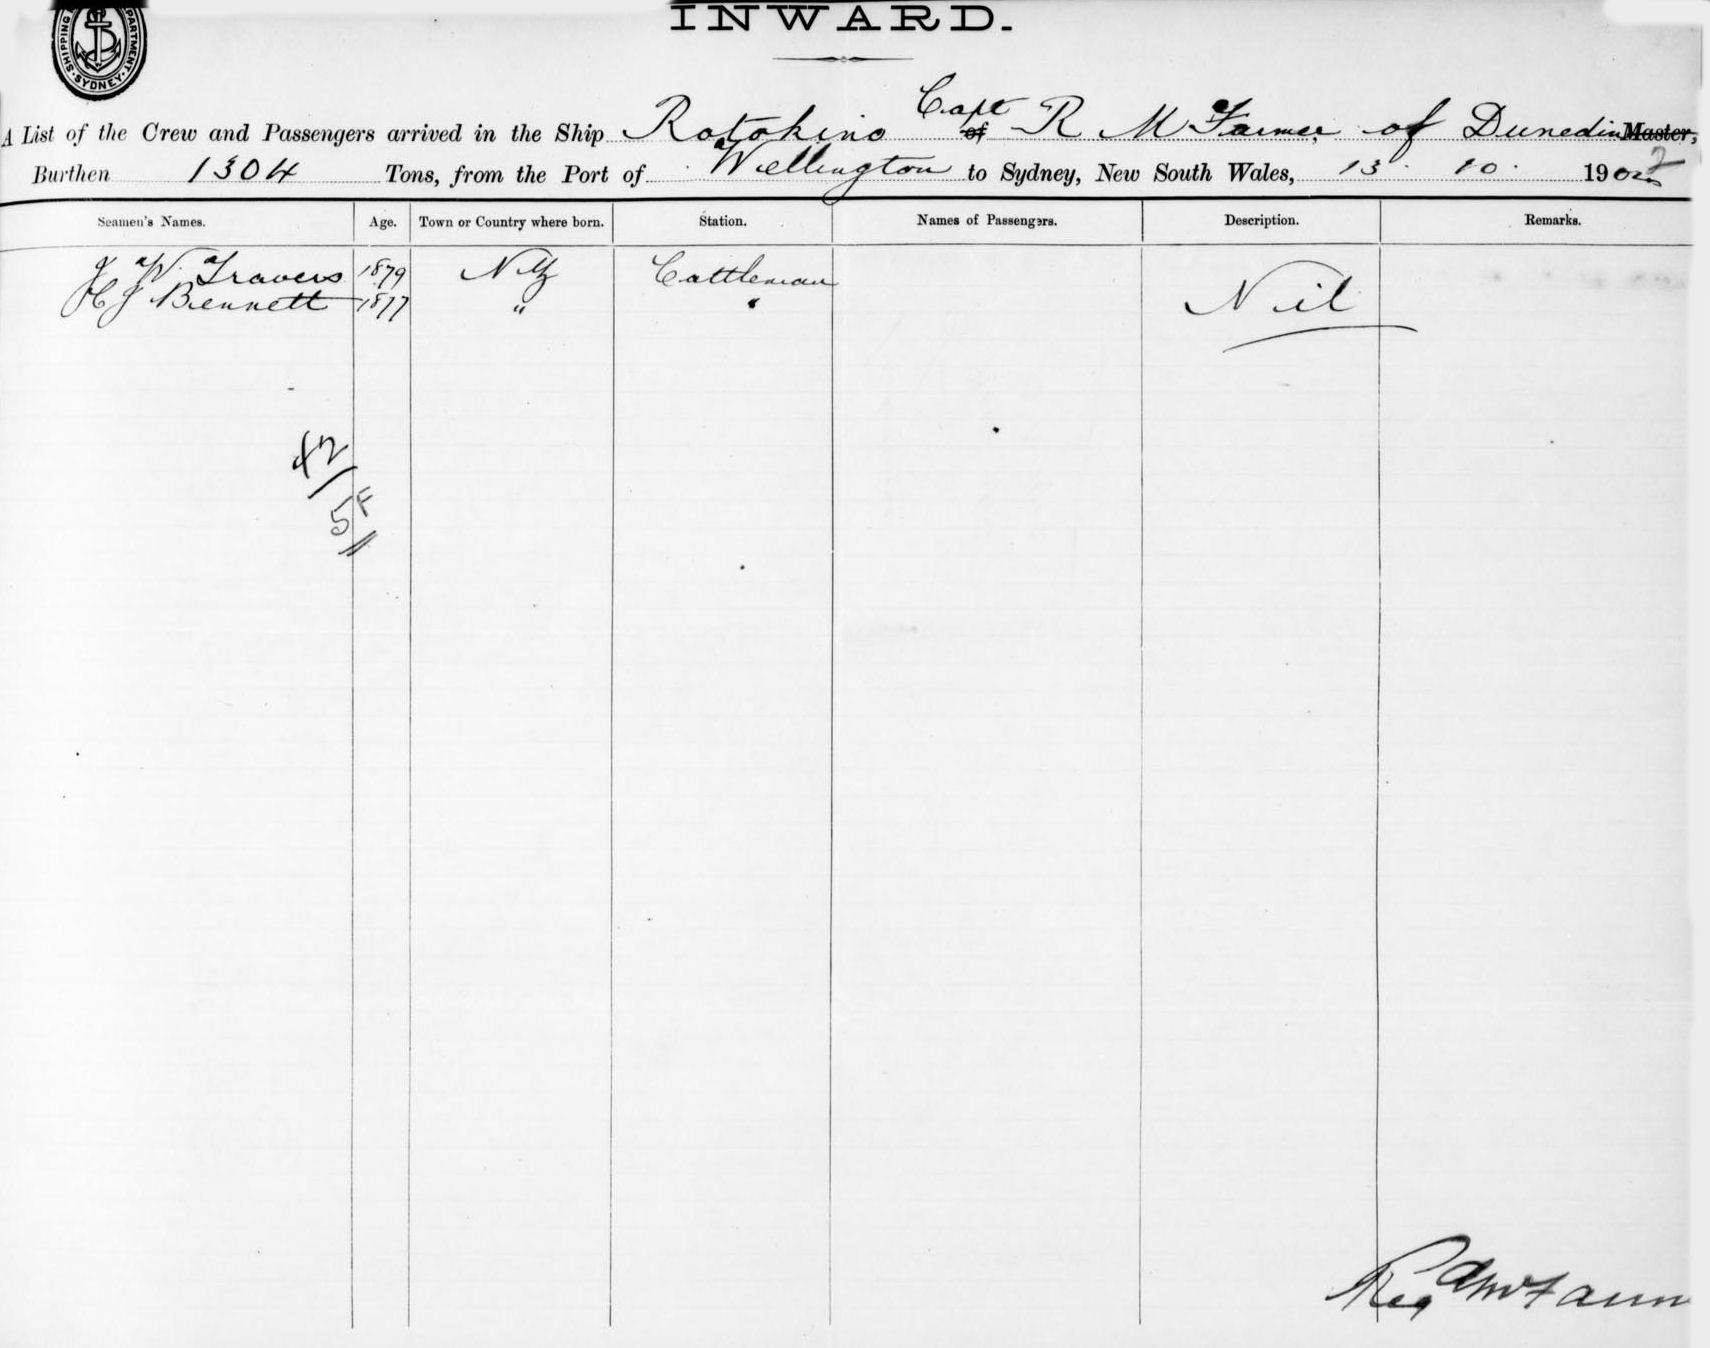 SHIPPING DEPARTMENT. SYDNEY.
INWARD.
Capt
A List of the Crew and Passengers arrived in the Ship Rotokino of R M Farmer, of Dunedin Master,
Burthen 1304 Tons, from the Port of Wellington to Sydney, New South Wales, 13 . 10 . 1902
Seamen's Names. Age. Town or Country where born. Station. Names of Passengers. Description. Remarks.
J W Travers 1879 NZ Cattleman
H J Bennett 1877 " " Nil
+2
5F